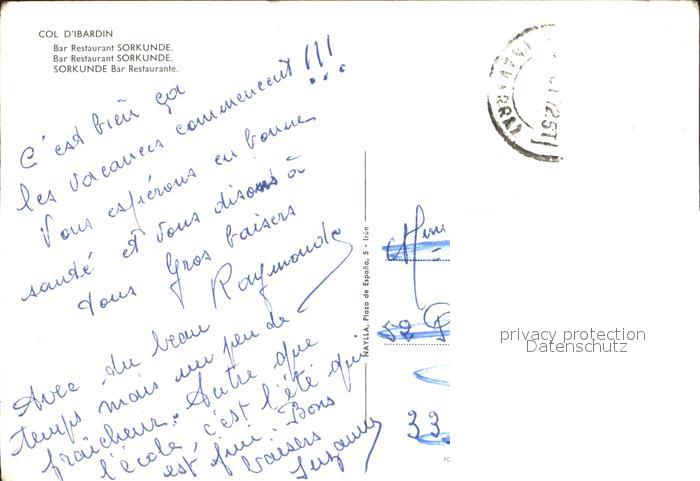 COL D'IBARDIN
Bar Restaurant SORKUNDE.
Bar Restaurant SORKUNDE.
SORKUNDE Bar Restaurante.
C'est bien ça
les vacances commencent !!!
Vous espérons en bonne
santé et vous disons à
tous Gros baisers
Raymonde
Avec du beau
temps mais un peu de
fraîcheur. Autre que
l'école, c'est l'été qui
est fini. Bons
baisers
Suzanne
NAYLLA, Plaza de España, 5 - Irún
(NAVARRA)
Mme
52
33
privacy protection
Datenschutz